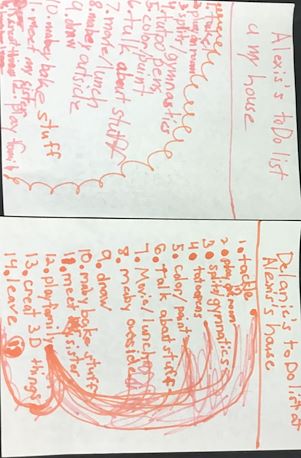 Alexis's toDo list
a my house
1. tackle
3. split/gymnastics
4. tattoo pens
5. color/paint
6. talk about stuff
7. movie/lunch
8. maby outside
9. draw
10. maby bake stuff
11. meet my sister
play family
Delanie's to Do list at
Alexis's house
1. tackle
3. split gymnastics
5. color/paint
6. talk about stuff
7. Movie/lunch
8. maby outside
9. draw
10. maby bake stuff
11. meet sister
12. play family
13. creat 3D things
14. leave